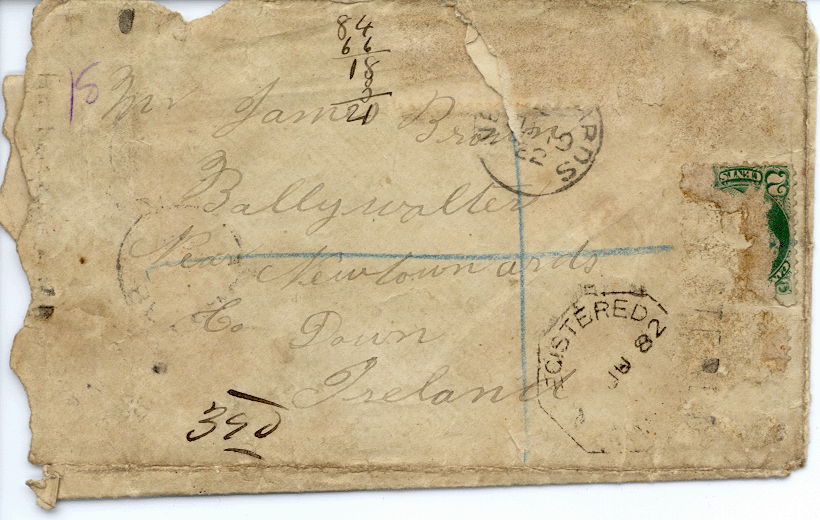 84
66
18
8
20
18
Mr James Brown
Ballywalter
Near Newtownards
Co Down
Ireland
ARDS
REGISTERED
82
2
CENTS